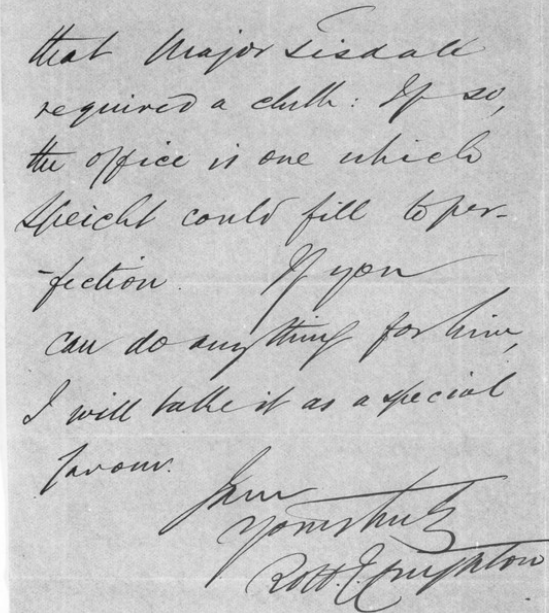 that Major Tisdall
required a clerk: If so,
the office is one which
Speight could fill to per-
-fection. If you
can do anything for him,
I will take it as a special
favour.
I am
Yours truly
Robt. Creighton